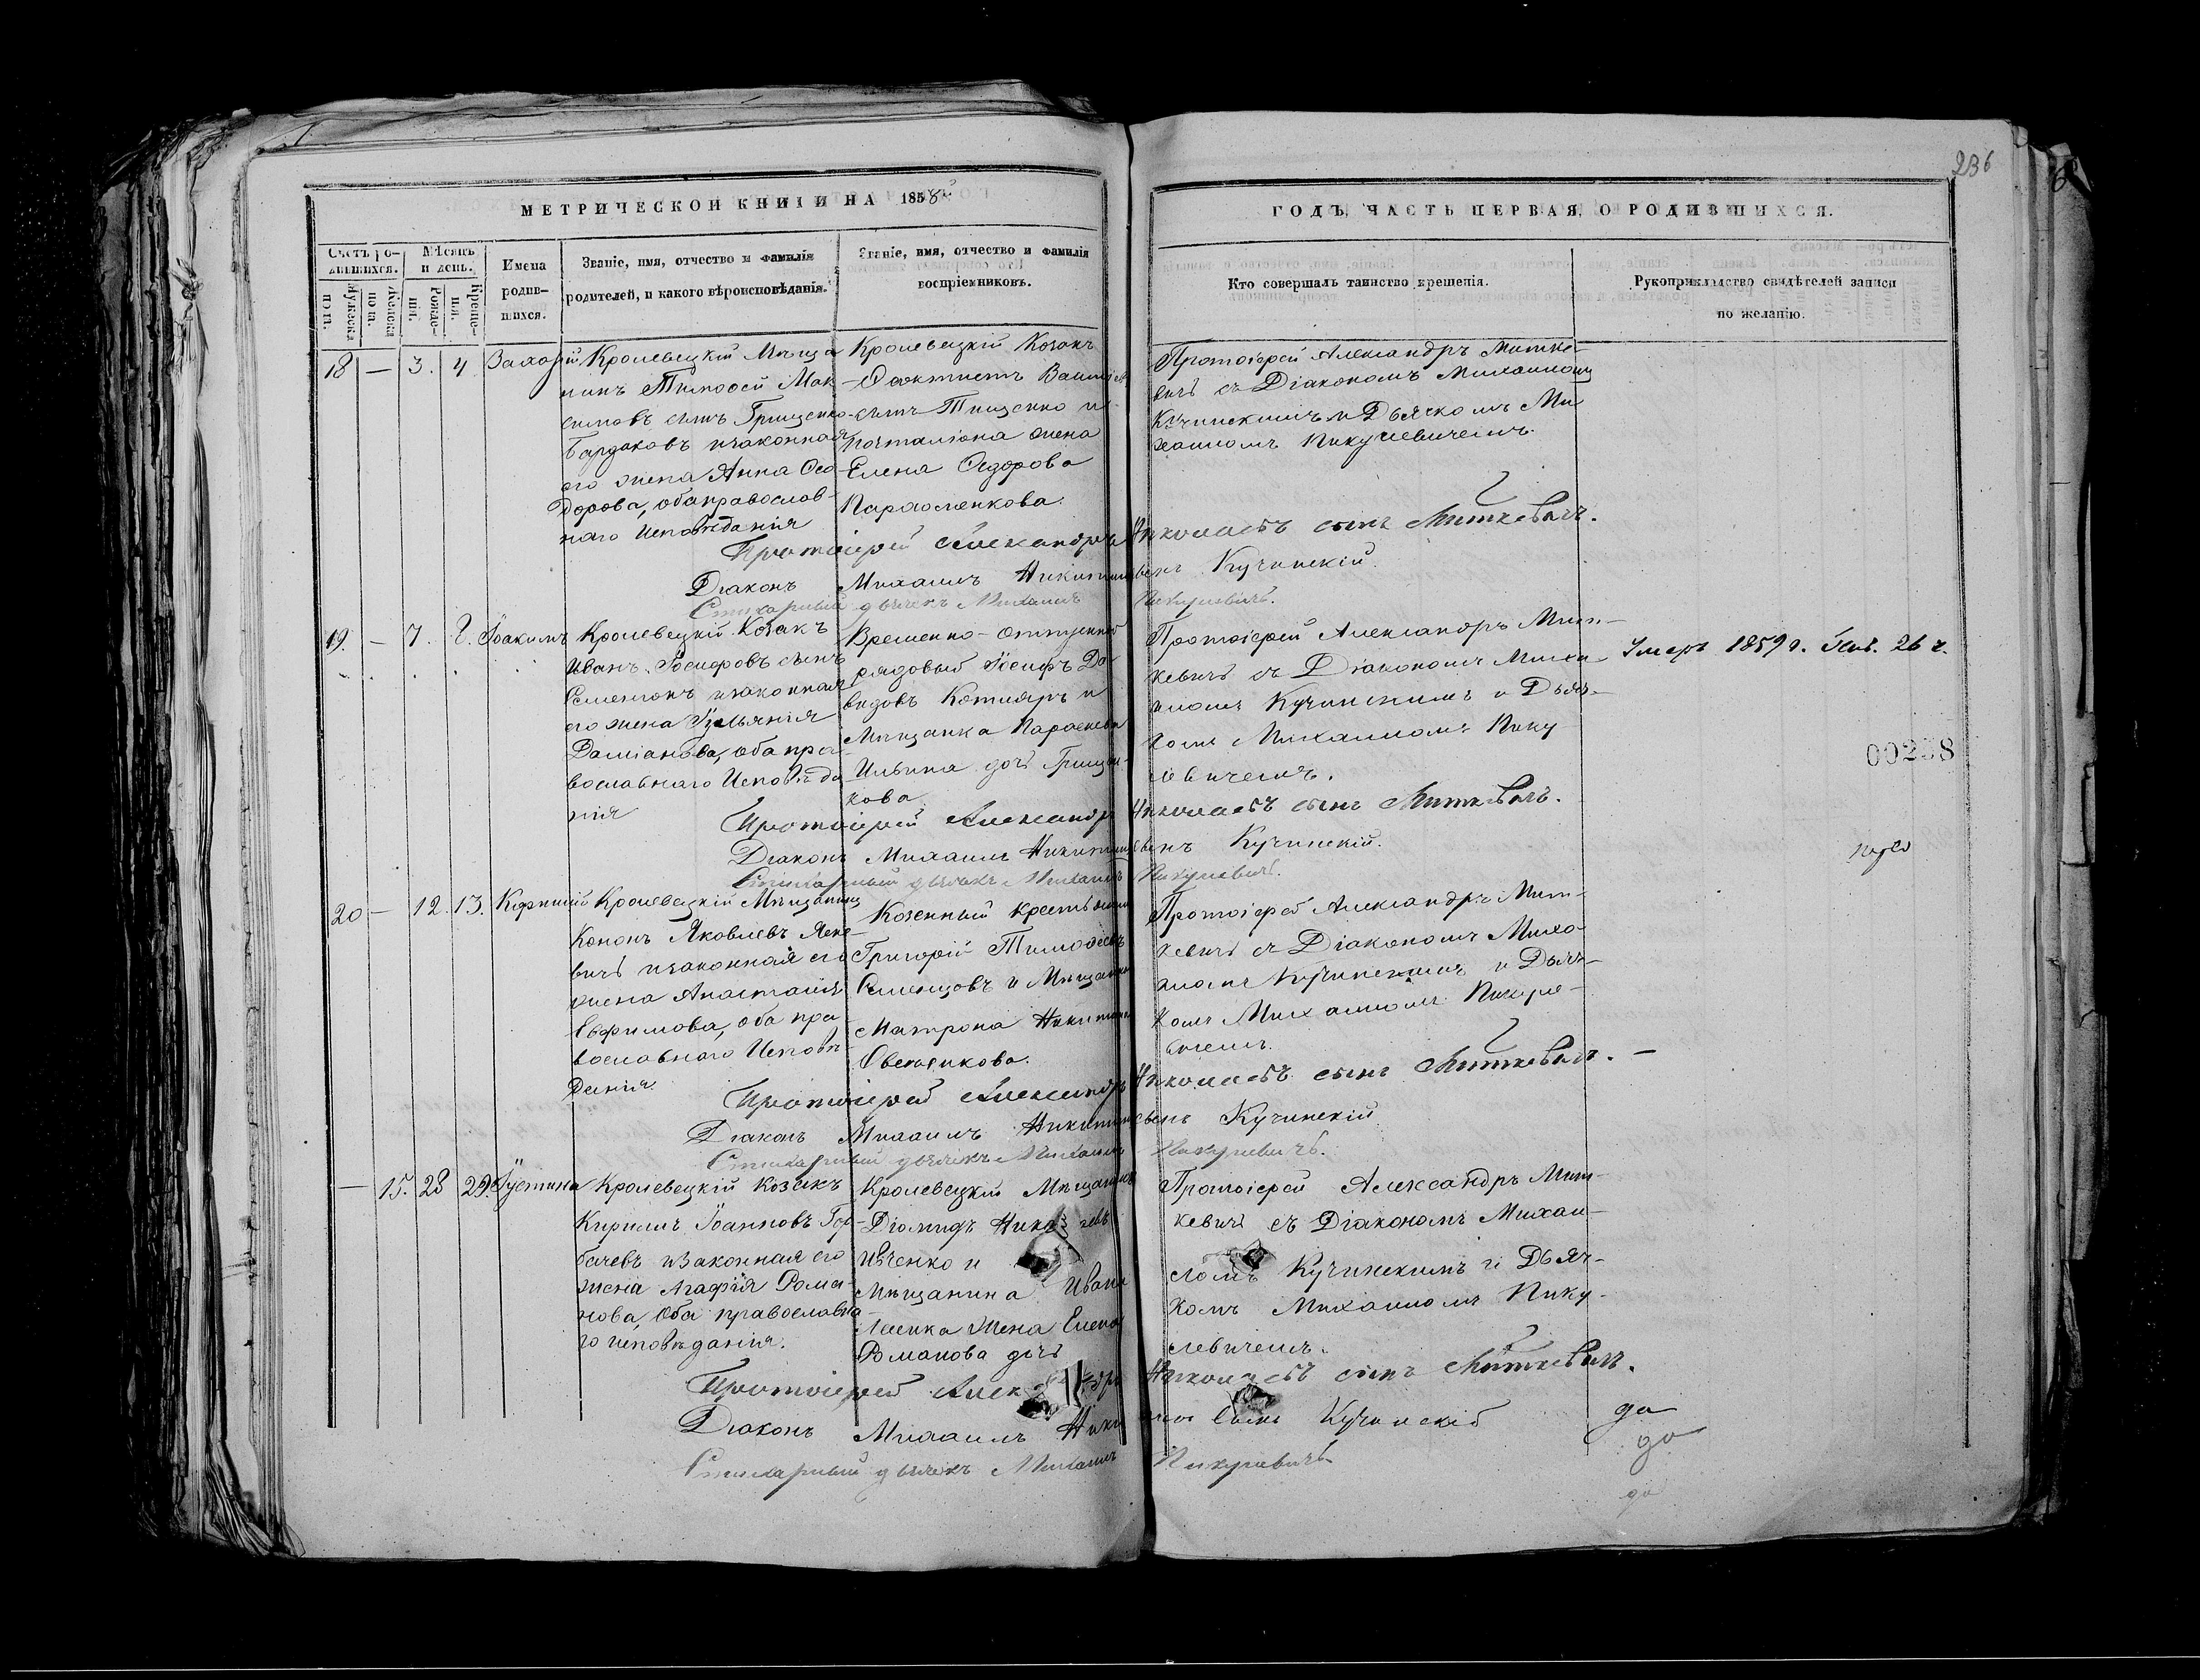 236
МЕТРИЧЕСКОЙ КНИГИ НА 1858й
ГОДЪ, ЧАСТЬ ПЕРВАЯ, О РОДИВШИХСЯ.
Счетъ ро-
дившихся.
Мѣсяцъ
и день.
Имена
родив-
шихся.
Званіе, имя, отчество и фамилія
родителей, и какого вѣроисповѣданія.
Званіе, имя, отчество и фамилія
воспріемниковъ.
Кто совершалъ таинство крещенія.
Рукоприкладство свидѣтелей записи
по желанію.
Мужеска
пола.
Женска
пола.
Рожде-
нія.
Креще-
нія.
18 — 3. 4 Захарій
Кролевецкій Мѣща
нинъ Тимоѳей Мак
симовъ сынъ Грищенко
Бардаковъ изаконная
его жена Анна Ѳео
дорова, оба православ-
наго Исповѣданія
Кролевецкій Козакъ
Ѳеоктистъ
сынъ Тищенко и
почталіона жена
Елена Ѳедорова
Пархоменкова.
Протоіерей Александръ Митке-
вичъ съ Діакономъ Михаиломъ
Кучинскимъ и Дьячкомъ Ми
хаиломъ Пикулевичемъ.
Протоіерей Александръ Николаевъ сынъ Миткевичъ.
Діаконъ Михаилъ Никитинъ сынъ Кучинскій.
Стихарный дьячекъ Михаилъ Пикулевичъ.
19. — 7. 8. Іоакимъ
Кролевецкій Козакъ
Иванъ Іосифовъ сынъ
изаконная
его жена Іульянія
Даміанова, оба пра-
вославнаго Исповѣда
нія
Временно-отпускной
рядовый Іосифъ Да
видовъ Котляръ и
Мѣщанка Параскева
Ильина дочь Грищен-
кова
Протоіерей Александръ Мит-
кевичъ съ Діакономъ Миха
иломъ Кучинскимъ и Дьяч-
комъ Михаиломъ Пику
левичемъ.
Умеръ 1859 г. 26 ч.
00238
Протоіерей Александръ Николаевъ сынъ Миткевичъ.
Діаконъ Михаилъ Никитинъ сынъ Кучинскій.
Стихарный дьячекъ Михаилъ Пикулевичъ.
20 — 12. 13.
Кролевецкій Мѣщанинъ
Кононъ Яковлевъ
вичъ изаконная его
жена Анастасія
Евфимова, оба пра-
вославнаго Исповѣ-
данія.
Казенный крестьянинъ
Григорій Тимоѳеевъ
и Мѣщанка
Матрона Никитина
Протоіерей Александръ Мит-
кевичъ съ Діакономъ Миха
иломъ Кучинскимъ и Дьяч-
комъ Михаиломъ Пикуле-
вичемъ.
Протоіерей Александръ Николаевъ сынъ Миткевичъ. —
Діаконъ Михаилъ Никитинъ сынъ Кучинскій.
Стихарный дьячекъ Михаилъ Пикулевичъ.
— 15. 28 29. Іустина
Кролевецкій Козакъ
Кириллъ Іоанновъ Гор-
бачевъ изаконная его
жена Агафія Рома
нова, оба православна-
го исповѣданія.
Кролевецкій Мѣщанинъ
Діомидъ
Ивченко и
Мѣщанина Ивана
жена Елена
Романова дочь
Протоіерей Александръ Мит-
кевичъ съ Діакономъ Михаи-
ломъ Кучинскимъ и Дьяч-
комъ Михаиломъ Пику-
левичемъ.
Протоіерей Александръ Николаевъ сынъ Миткевичъ.
Діаконъ Михаилъ Никитинъ сынъ Кучинскій
Стихарный дьячекъ Михаилъ Пикулевичъ